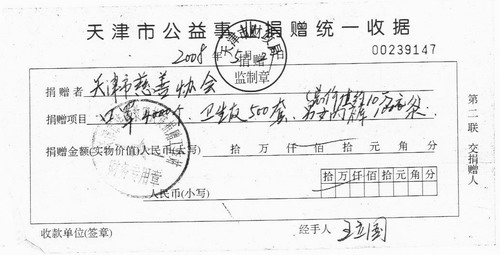 天津市公益事业捐赠统一收据
2008年5月
天津市财政局
捐赠
监制章
00239147
捐赠者 天津市慈善协会
捐赠项目 口罩4000个、卫生衣500套、
捐赠金额(实物价值)人民币(大写) 拾 万 仟 佰 拾 元 角 分
拾万仟佰拾元角分
人民币(小写)
收款单位(签章) 经手人 王立国
第二联 交捐赠人